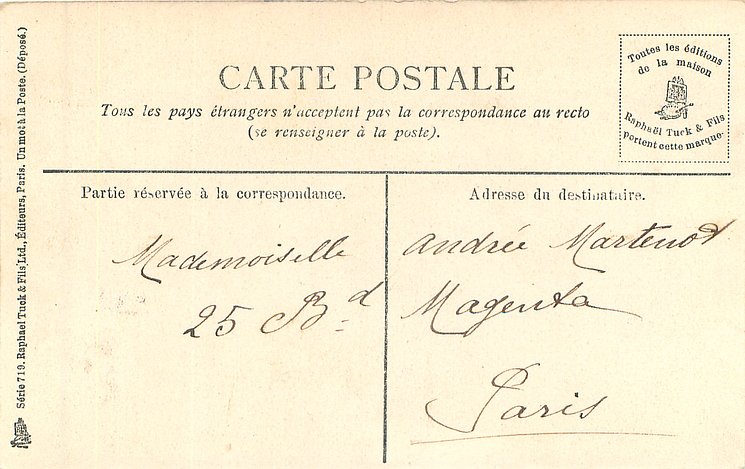 CARTE POSTALE
Tous les pays étrangers n'acceptent pas la correspondance au recto
(se renseigner à la poste).
Toutes les éditions
de la maison
Raphaël Tuck & Fils
portent cette marque.
Partie réservée à la correspondance.
Adresse du destinataire.
Mademoiselle Andrée Martenot
25 Bd Magenta
Paris
Série 719. Raphael Tuck & Fils Ltd., Éditeurs, Paris. Un mot à la Poste. (Déposé.)